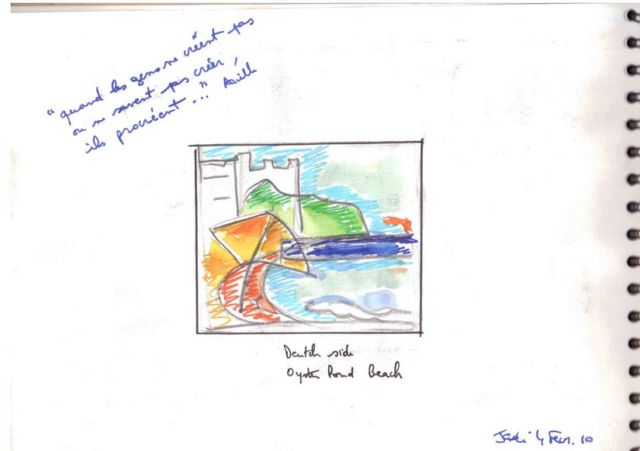 "quand les gens ne créent pas
ou ne savent pas créer,
ils procréent..."
Deutch side
Oyster Pond Beach
Jeudi 4 Fevr. 10